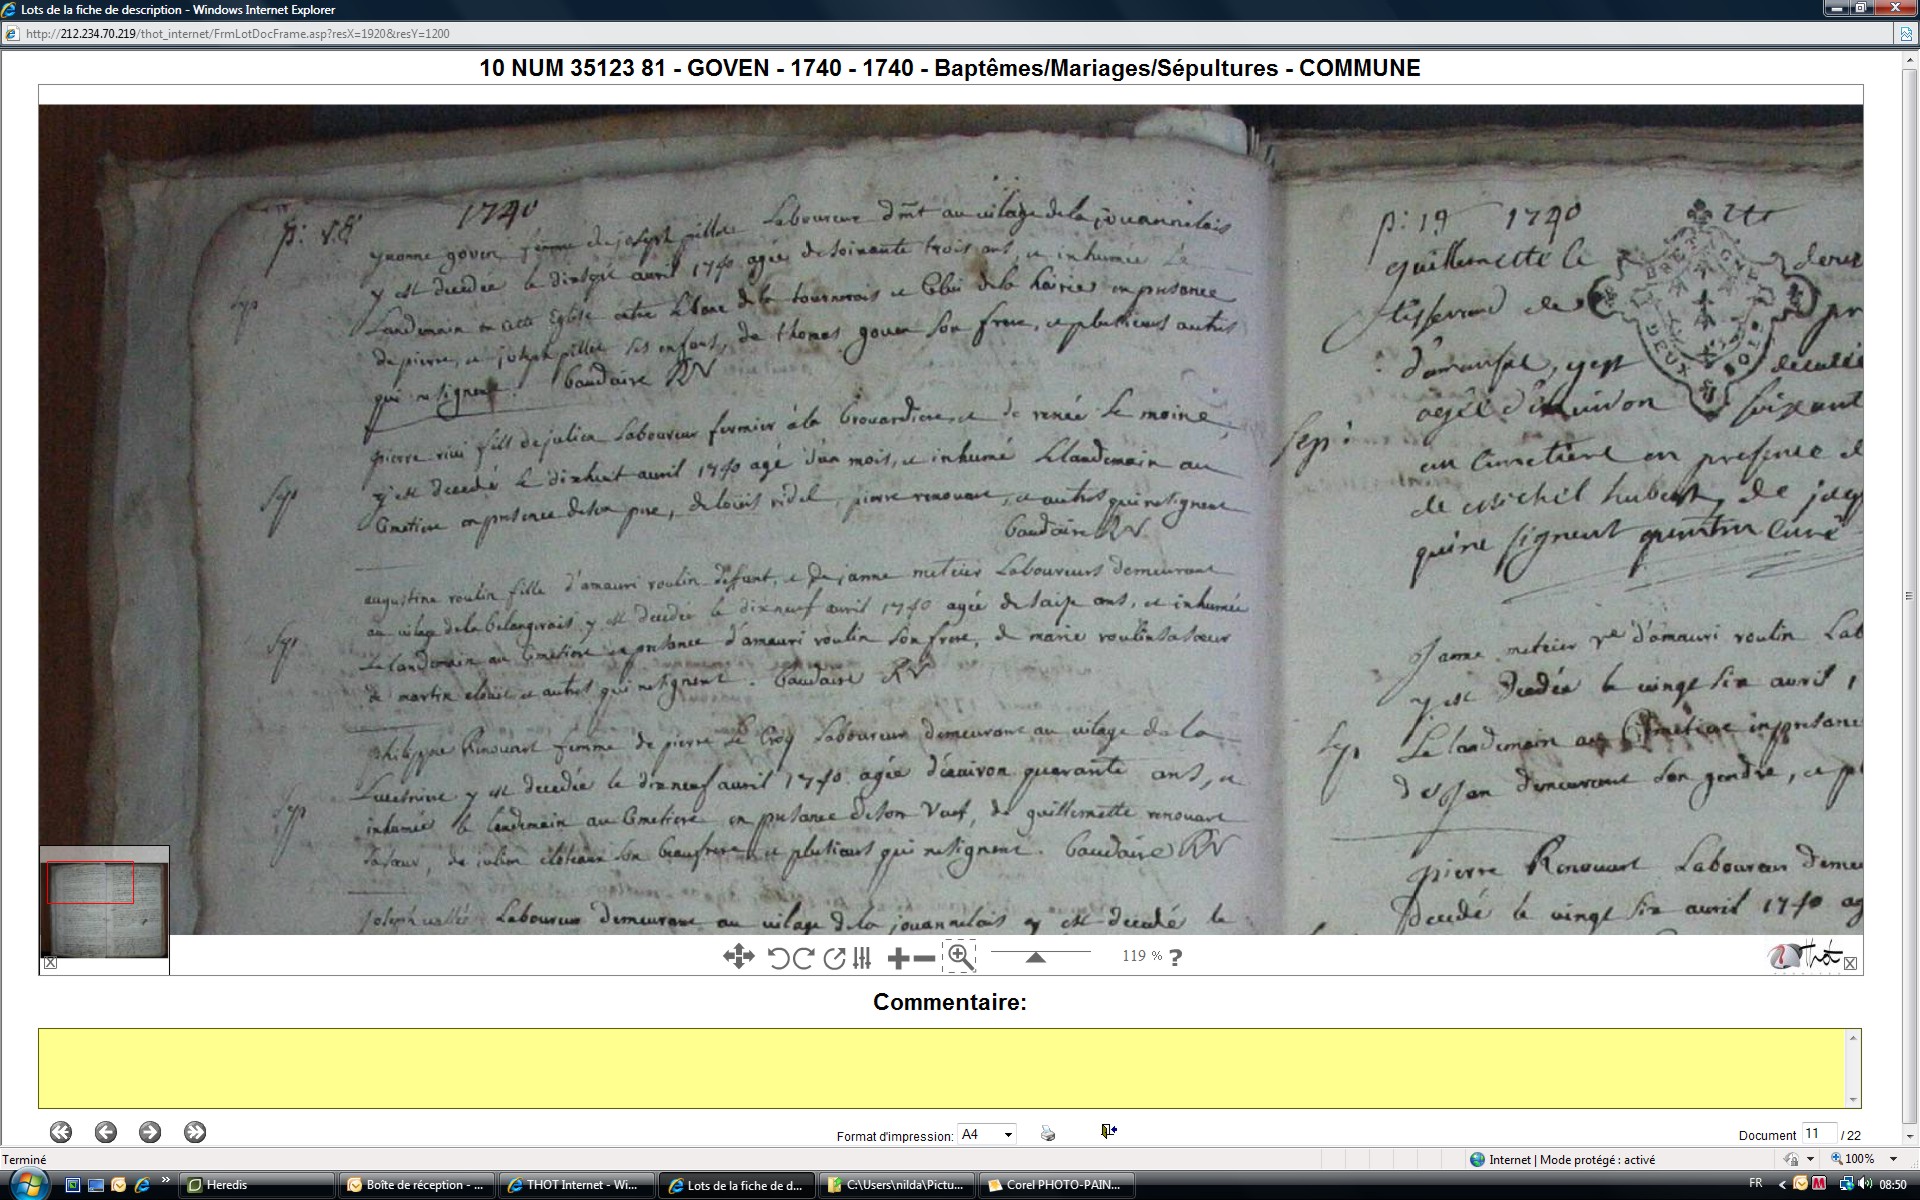 Lots de la fiche de description - Windows Internet Explorer
http://212.234.70.219/thot_internet/FrmLotDocFrame.asp?resX=1920&resY=1200
10 NUM 35123 81 - GOVEN - 1740 - 1740 - Baptêmes/Mariages/Sépultures - COMMUNE
1740
yvonne goven femme de joseph pillot Laboureur dmt au vilage de la jouannelais
y est decedée le avril 1740 agée de soixante trois ans, et inhumée Le
Landemain en cette Eglise entre de la et Celui de la hairie en presance
de pierre, et joseph pillot ses enfans, de thomas goven son frere, et plusieurs autres
qui ne signent. baudaire
pierre fils de julien Laboureur fermier à la et de renée Le moine,
y est decedé Le dixhuit avril 1740 agé d'un mois, et inhumé Le landemain au
Cimetiere en presence de son pere, de louis ridel, pierre renouart, et autres qui ne signent
baudaire
Sep
augustine roulin fille d'amauri roulin defunt, et de janne meteier Laboureurs demeurant
au vilage de la belangerais y est decedée le dixneuf avril 1740 agée de saise ans, et inhumée
Le landemain au Cimetiere en presance d'amauri roulin son frere, de marie roulin sa sœur
de martin et autres qui ne signent. baudaire
Sep
philippe Renouart femme de pierre Le Laboureur demeurant au vilage de la
y est decedée le dixneuf avril 1740 agée d'environ quarante ans, et
inhumée le landemain au Cimetiere en presance de son Veuf, de guillemette renouart
sa sœur, de julien son beaufrere et plusieurs qui ne signent. baudaire
Sep
joseph Laboureur demeurant au vilage de la jouannelais y est decedé le
p: 19 1740
guillemette le
tisserand de
y est decedée
agée d'environ soixant
au Cimetiere en presence
de michel hubert, de
qui ne signent curé
Sep:
BRETAGNE
DEUX
janne meteier ve d'amauri roulin Lab
y est decedée le vingt six avril 1
Sep
Le landemain au Cimetiere en presance
demeurant son gendre, et pl
pierre Renouart Laboureur demeu
decedé le vingt six avril 1740 ag
119 % ?
Thot
Commentaire:
Format d'impression: A4
Document 11 / 22
Terminé
Internet | Mode protégé : activé
100%
Heredis
Boîte de réception - ...
THOT Internet - Wi...
Lots de la fiche de d...
C:\Users\nilda\Pictu...
Corel PHOTO-PAIN...
FR
08:50